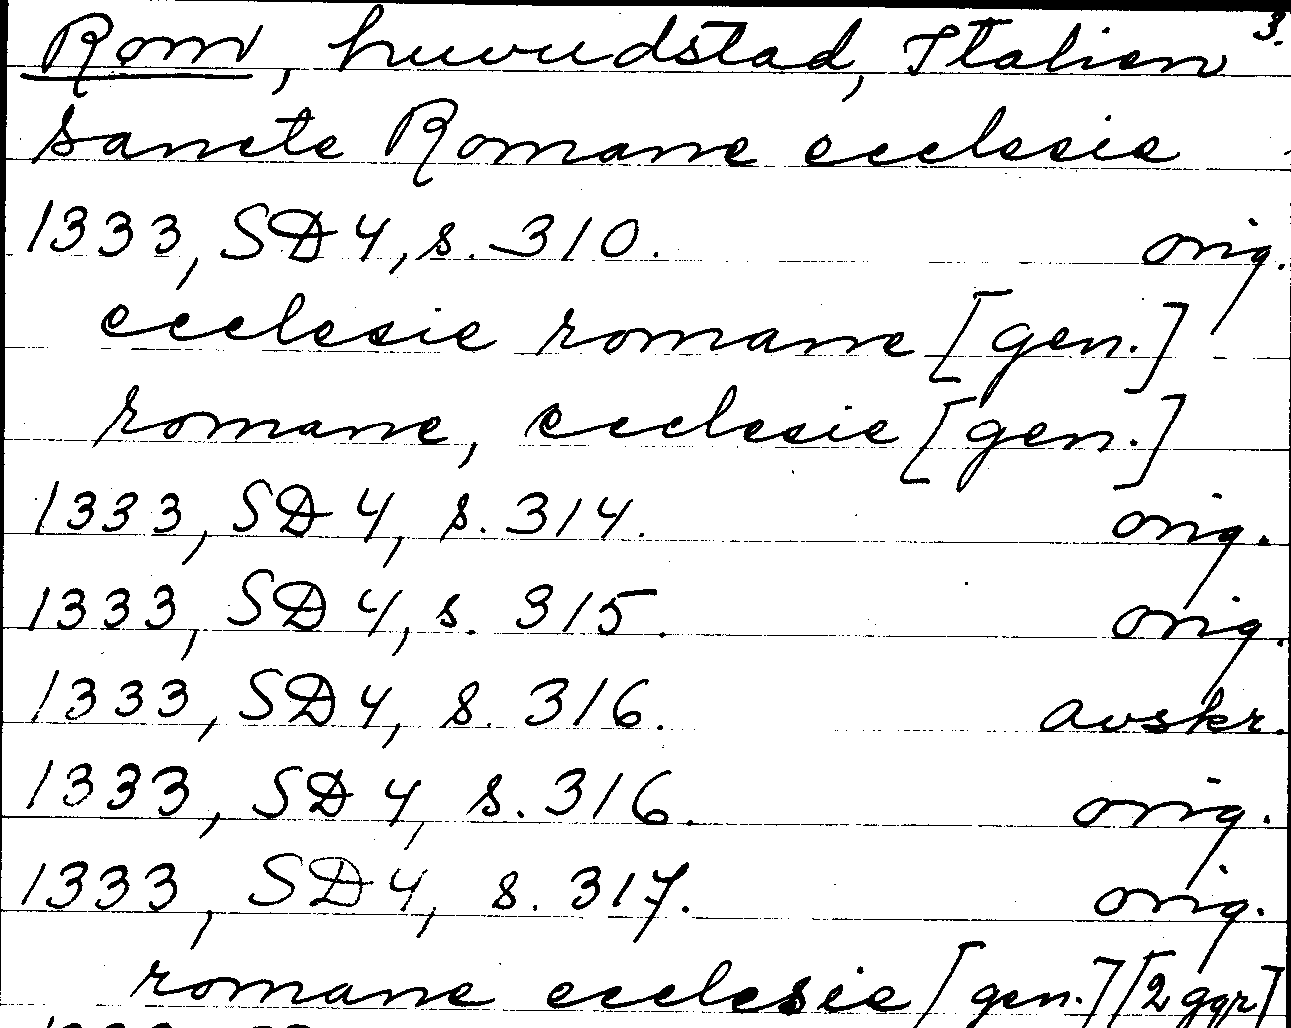 Rom, huvudstad, Italien 3.
Sancte Romane ecclesie
1333, SD 4, s. 310. orig.
ecclesie romane [gen.]
romane, ecclesie [gen.]
1333, SD 4, s. 314. orig.
1333, SD 4, s. 315. orig.
1333, SD 4, s. 316. avskr.
1333, SD 4, s. 316. orig.
1333, SD 4, s. 317. orig.
romane ecclesie [gen.] [2 ggr]